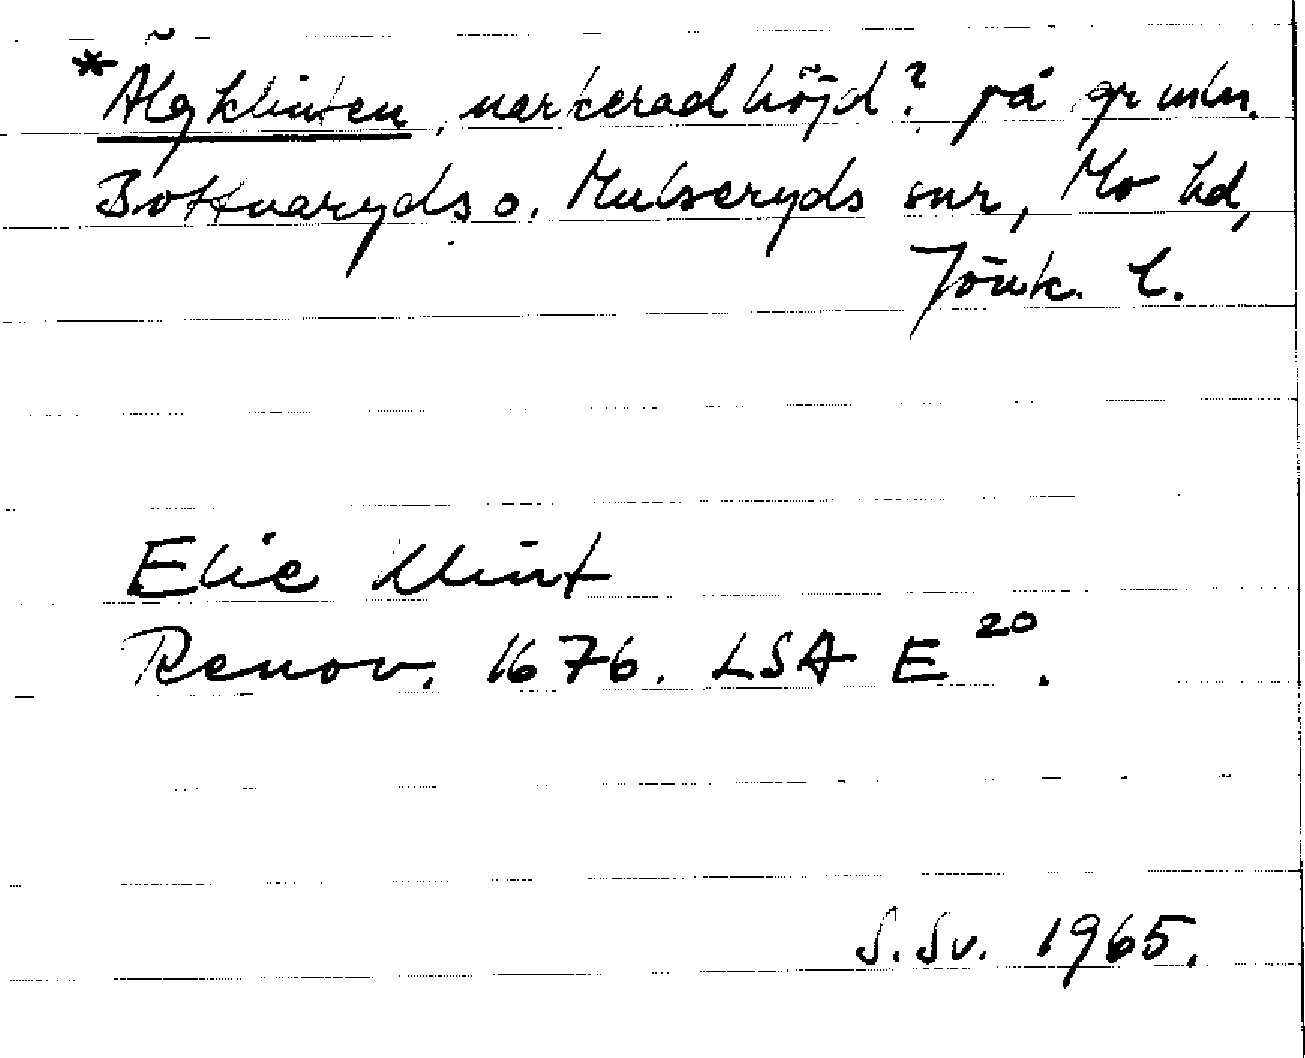 *Älgklinten, markerad höjd? på gr mln.
Bottnaryds o. Mulseryds snr, Mo hd,
Jönk. l.
Elie Klint
Renov. 1676. LSA E 20.
S.Sv. 1965.